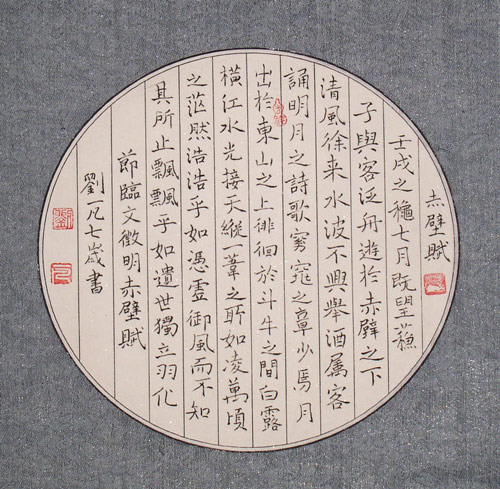 赤壁賦
壬戌之龝七月既望蘓
子與客泛舟遊於赤壁之下
清風徐来水波不興舉酒属客
誦明月之詩歌窈窕之章少焉月
出於東山之上徘徊於斗牛之間白露
橫江水光接天縱葦之所如凌萬頃
之茫然浩浩乎如憑虛御風而不知
其所止飄飄乎如遺世獨立羽化
節臨文徵明赤壁賦
劉一凡七歲書